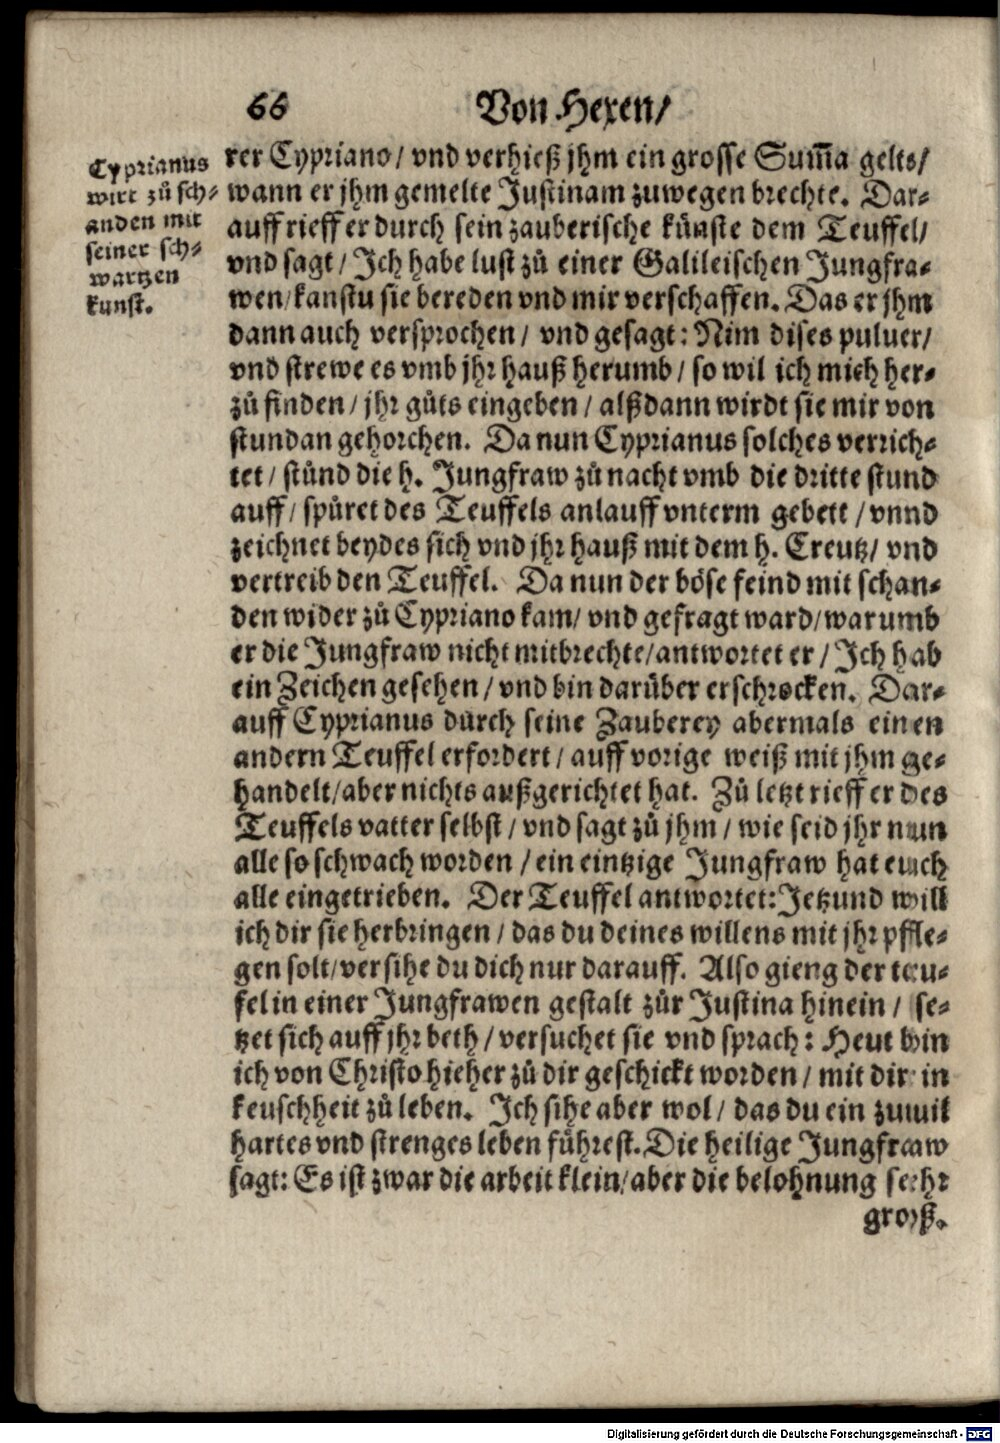 66 Von Hexen/
Cyprianus
wirt zů sch-
anden mit
seiner sch-
wartzen
kunst.
rer Cypriano/ vnd verhieß jhm ein grosse Sum̃a gelts/
wann er jhm gemelte Justinam zuwegen brechte. Dar-
auff rieff er durch sein zauberische künste dem Teuffel/
vnd sagt/ Ich habe lust zů einer Galileischen Jungfra-
wen/ kanstu sie bereden vnd mir verschaffen. Das er jhm
dann auch versprochen/ vnd gesagt: Nim dises puluer/
vnd strewe es vmb jhr hauß herumb/ so wil ich mich her-
zů finden/ jhr gůts eingeben/ alßdann wirdt sie mir von
stundan gehorchen. Da nun Cyprianus solches verrich-
tet/ stůnd die h. Jungfraw zů nacht vmb die dritte stund
auff/ spüret des Teuffels anlauff vnterm gebett/ vnnd
zeichnet beydes sich vnd jhr hauß mit dem h. Creutz/ vnd
vertreib den Teuffel. Da nun der böse feind mit schan-
den wider zů Cypriano kam/ vnd gefragt ward/ warumb
er die Jungfraw nicht mitbrechte/ antwortet er/ Ich hab
ein Zeichen gesehen/ vnd bin darüber erschrocken. Dar-
auff Cyprianus durch seine Zauberey abermals einen
andern Teuffel erfordert/ auff vorige weiß mit jhm ge-
handelt/ aber nichts außgerichtet hat. Zů letzt rieff er des
Teuffels vatter selbst/ vnd sagt zů jhm/ wie seid jhr nun
alle so schwach worden/ ein eintzige Jungfraw hat euch
alle eingetrieben. Der Teuffel antwortet: Jetzund will
ich dir sie herbringen/ das du deines willens mit jhr pffle-
gen solt/ versihe du dich nur darauff. Also gieng der teu-
fel in einer Jungfrawen gestalt zůr Justina hinein/ se-
tzet sich auff jhr beth/ versuchet sie vnd sprach: Heut bin
ich von Christo hieher zů dir geschickt worden/ mit dir in
keuschheit zů leben. Ich sihe aber wol/ das du ein zuuil
hartes vnd strenges leben führest. Die heilige Jungfraw
sagt: Es ist zwar die arbeit klein/ aber die belohnung sehr
groß.
Digitalisierung gefördert durch die Deutsche Forschungsgemeinschaft - DFG